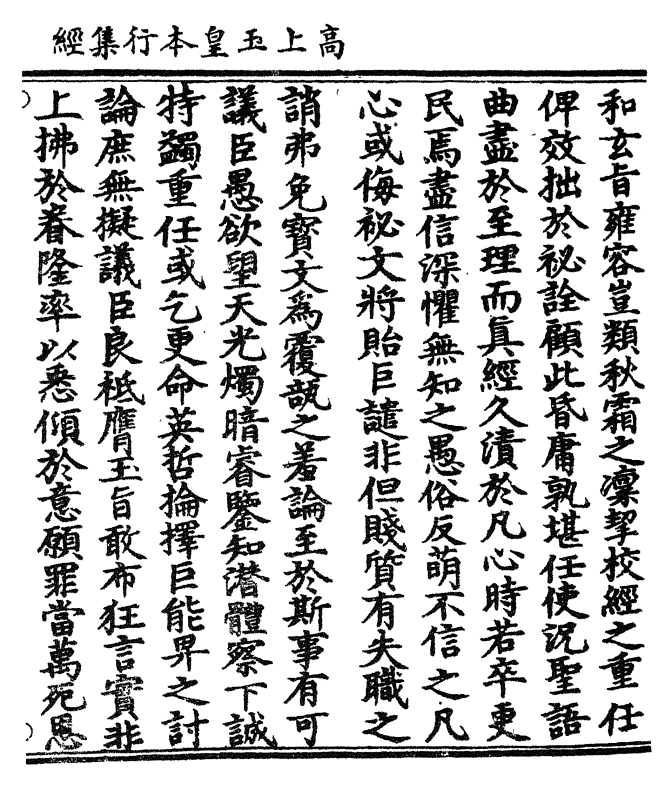 高上玉皇本行集經
和玄旨雍容豈類秋霜之凜挈校經之重任
俾效拙於祕詮顧此昏庸孰堪任使況聖語
曲盡於至理而真經久瀆於凡心時若卒更
民焉盡信深懼無知之愚俗反萌不信之凡
心或侮祕文將貽巨譴非但賤質有失職之
誚弗免寶文為覆瓿之羞論至於斯事有可
議臣愚欲望天光燭暗睿鑒知潛體察下誠
特蠲重任或乞更命英哲掄擇巨能畀之討
論庶無擬議臣良祗膺玉旨敢布狂言實非
上拂於眷隆率以悉傾於意願罪當萬死恩